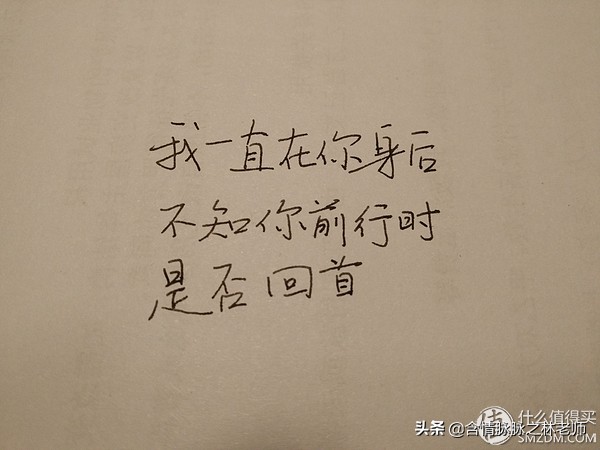 我一直在你身后
不知你前行时
是否回首
头条 @含情脉脉之林老师
值 什么值得买
SMZDM.COM